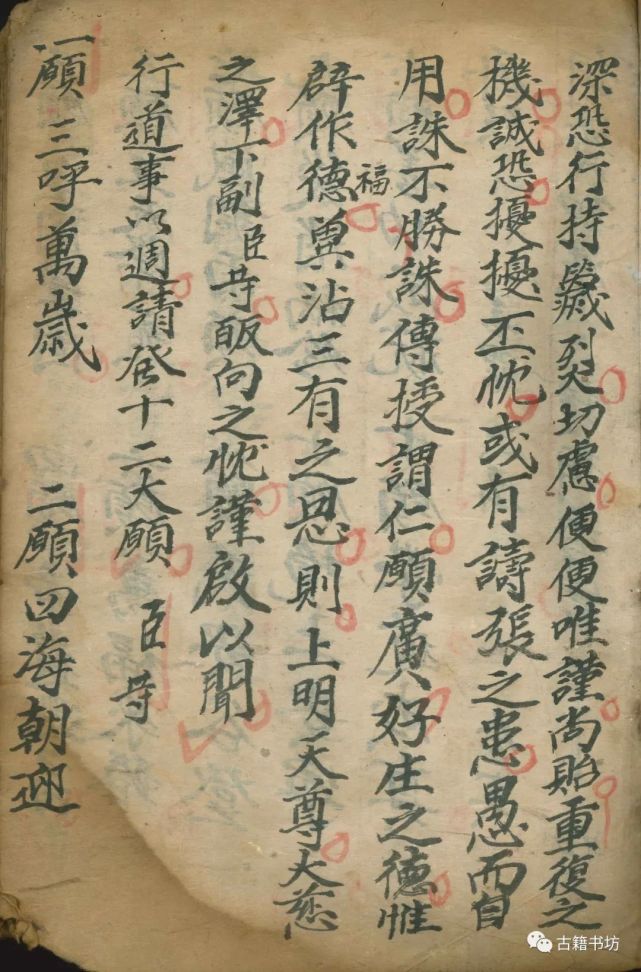 深恐行持蹴烈切慮便便唯謹尚貽重復之
機誠恐擾擾丕忱或有譸張之患愚而自
用誅不勝誅傳授謂仁願廣好庄之德惟
辟作福德兾沾三有之恩則上明天尊大慈
之澤下副臣等皈向之忱謹啟以聞
行道事以週請發十二大願 臣等
一願 三呼萬歲 二願四海朝迎
古籍书坊